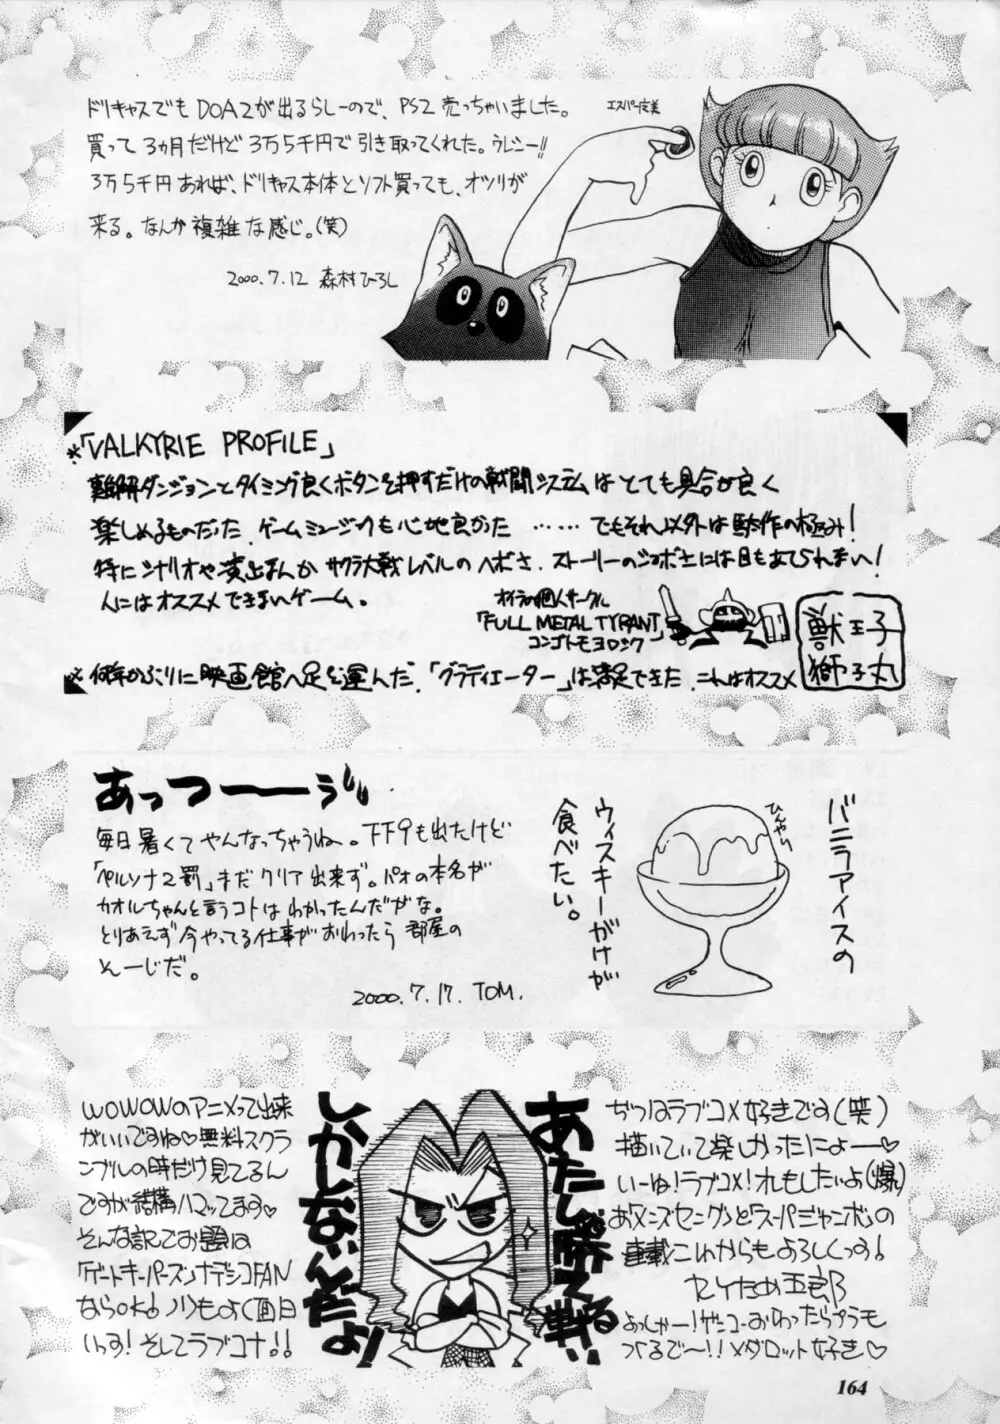 ドリキャスでもDOA2が出るらしーので、PS2売っちゃいました。
買って3ヵ月だけど3万5千円で引き取ってくれた。ウレシー!!
3万5千円あれば、ドリキャス本体とソフト買っても、オツリが
来る。なんか複雑な感じ。(笑)
2000.7.12 森村ひろし
エスパー
*「VALKYRIE PROFILE」
難解ダンジョンとタイミング良くボタンを押すだけの戦闘システムはとても具合が良く
楽しめるものだった。ゲームミュージックも心地良かった ……でもそれ以外は駄作の極み!
特にシナリオや演出なんかサクラ大戦レベルのヘボさ、ストーリーのショボさには目もあてられない!
人にはオススメできないゲーム。
オイラの個人サークル
「FULL METAL TYRANT」
コンゴトモヨロシク
獣王子
獅子丸
*何年かぶりに映画館へ足を運んだ。「グラディエーター」は満足できた。これはオススメ
あっつーーぅ
毎日暑くてやんなっちゃうね。FF9も出たけど
「ペルソナ2罰」まだクリア出来ず。パオの本名が
カオルちゃんと言うコトはわかったんだがな。
とりあえず今やってる仕事がおわったら部屋の
そーじだ。
2000.7.17. TOM.
バニラアイスの
ウィスキーがけが
食べたい。
ひんやり
WOWOWのアニメって出来
がいいですね♡無料スクラ
ンブルの時だけ見てるん
ですが結構ハマってます♡
そんな訳でお題は
「ゲートキーパーズ」ナデシコFAN
ならok! ノリもよく(面白
いっす! そしてラブコメ!!
あたし勝てる戦い
しかしないんだよ!
ぢつはラブコメ好きです(笑)
描いていて楽しかったにょー♡
いーね!ラブコメ!オレもしたいよ(爆)
連載これからもよろしくっす!
五郎
よっしゃー!ゲンコーおわったらプラモ
つくるで〜!!メダロット好き♡
164